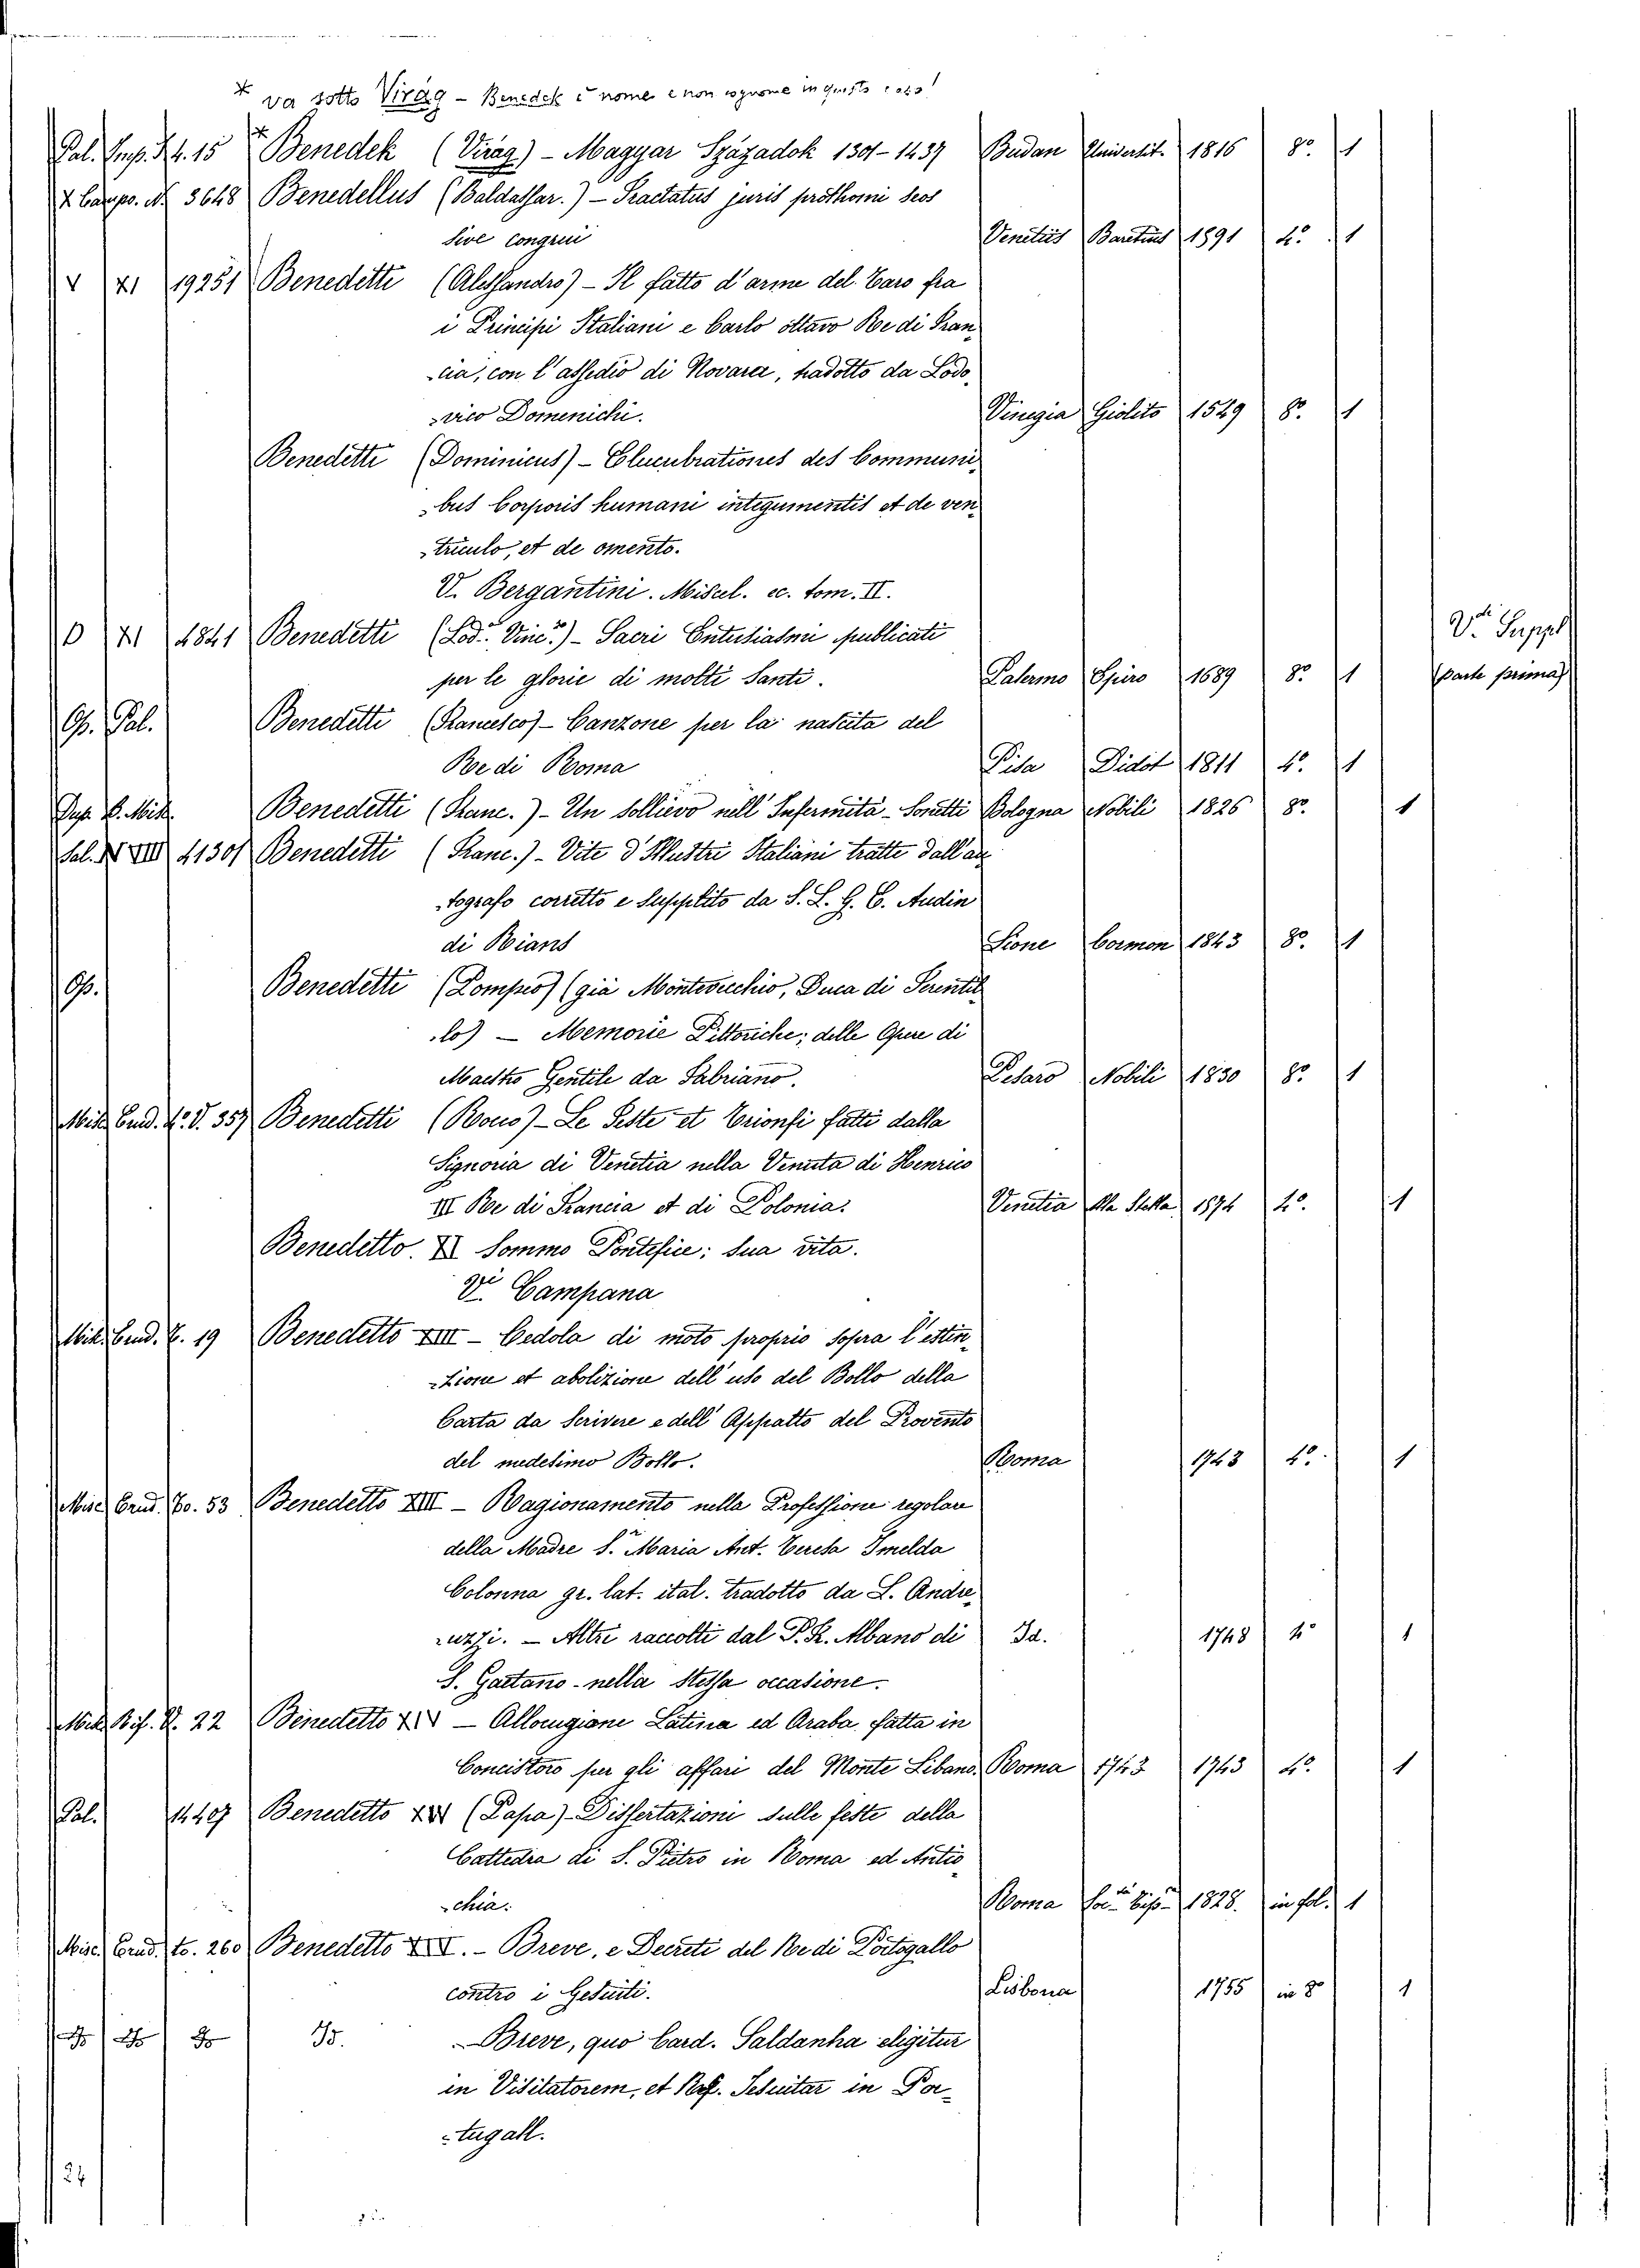 * va sotto Virág - Benedek è nome e non cognome in questo caso!
* Benedek (Virág) - Magyar Százádok 1301-1437 Budan Universit. 1816 8º. 1
3648 Benedellus (Baldassar.) - Tractatus juris prothomi seos
sive congrui Venetiis Baretius 1591 4º 1
V XI 19251 Benedetti (Alessandro) - Il fatto d'arme del Taro fra
i Principi Italiani e Carlo ottavo Re di Fran
-cia, con l'assedio di Novara, tradotto da Lodo
-vico Domenichi. Vinegia Giolito 1549 8º. 1
Benedetti (Dominicus) - Elucubrationes des Communi
-bus Corporis humani integumentis et de ven
-triculo, et de omento.
V. Bergantini. Miscel. ec. tom. II.
4841 Benedetti (Lod.º Vinc.º) - Sacri Entusiasmi publicati
per le glorie di molti Santi. Palermo Spiro 1689 8º 1 Vedi Suppl (parte prima)
Op. Pal. Benedetti (Francesco) - Canzone per la nascita del
Re di Roma Pisa Didot 1811 4º. 1
Benedetti (Franc.) - Un sollievo nell'Infermità - Sonetti Bologna Nobili 1826 8º. 1
Benedetti (Franc.) - Vite d'Illustri Italiani tratte dall'au
-tografo corretto e supplito da S. L. G. E. Audin
di Rians Lione Cormon 1843 8º. 1
Op. Benedetti (Pompeo) (già Montevecchio, Duca di Ferentil
-lo) - Memorie Pittoriche; delle Opere di
Maestro Gentile da Fabriano. Pesaro Nobili 1830 8º 1
Misc. Erud. 4º. V. 357 Benedetti (Rocco) - Le Feste et Trionfi fatti dalla
Signoria di Venetia nella Venuta di Henrico
III Re di Francia et di Polonia. Venetia Alla Stella 1574 4º. 1
Benedetto. XI Sommo Pontefice; sua vita.
Vi Campana
19 Benedetto XIII - Cedola di moto proprio sopra l'estin
-zione et abolizione dell'uso del Bollo della
Carta da Scrivere e dell'Appatto del Provento
del medesimo Bollo. Roma 1743 4º. 1
Misc. Erud. to. 53 Benedetto XIII - Ragionamento nella Professione regolare
della Madre S.r Maria Ant. Teresa Imelda
Colonna gr. lat. ital. tradotto da L. Andre
-uzzi. - Altri raccolti dal P. R. Albano di Id. 1748 4º 1
S. Gaetano - nella stessa occasione.
22 Benedetto XIV - Allocugione Latina ed Araba fatta in
Concistoro per gli affari del Monte Libano. Roma 1743 1743 4º. 1
Pal. 14407 Benedetto XIV (Papa) - Dissertazioni sulle feste della
Cattedra di S. Pietro in Roma ed Antio
-chia. Roma 1828. in fol. 1
Misc. Erud. to. 260 Benedetto XIV. - Breve, e Decreti del Re di Portogallo
contro i Gesuiti. Lisbona 1755 in 8º 1
- Breve, quo Card. Saldanha eligitur
in Visitatorem, et Ref. Jesuitar in Por
-tugall.
24